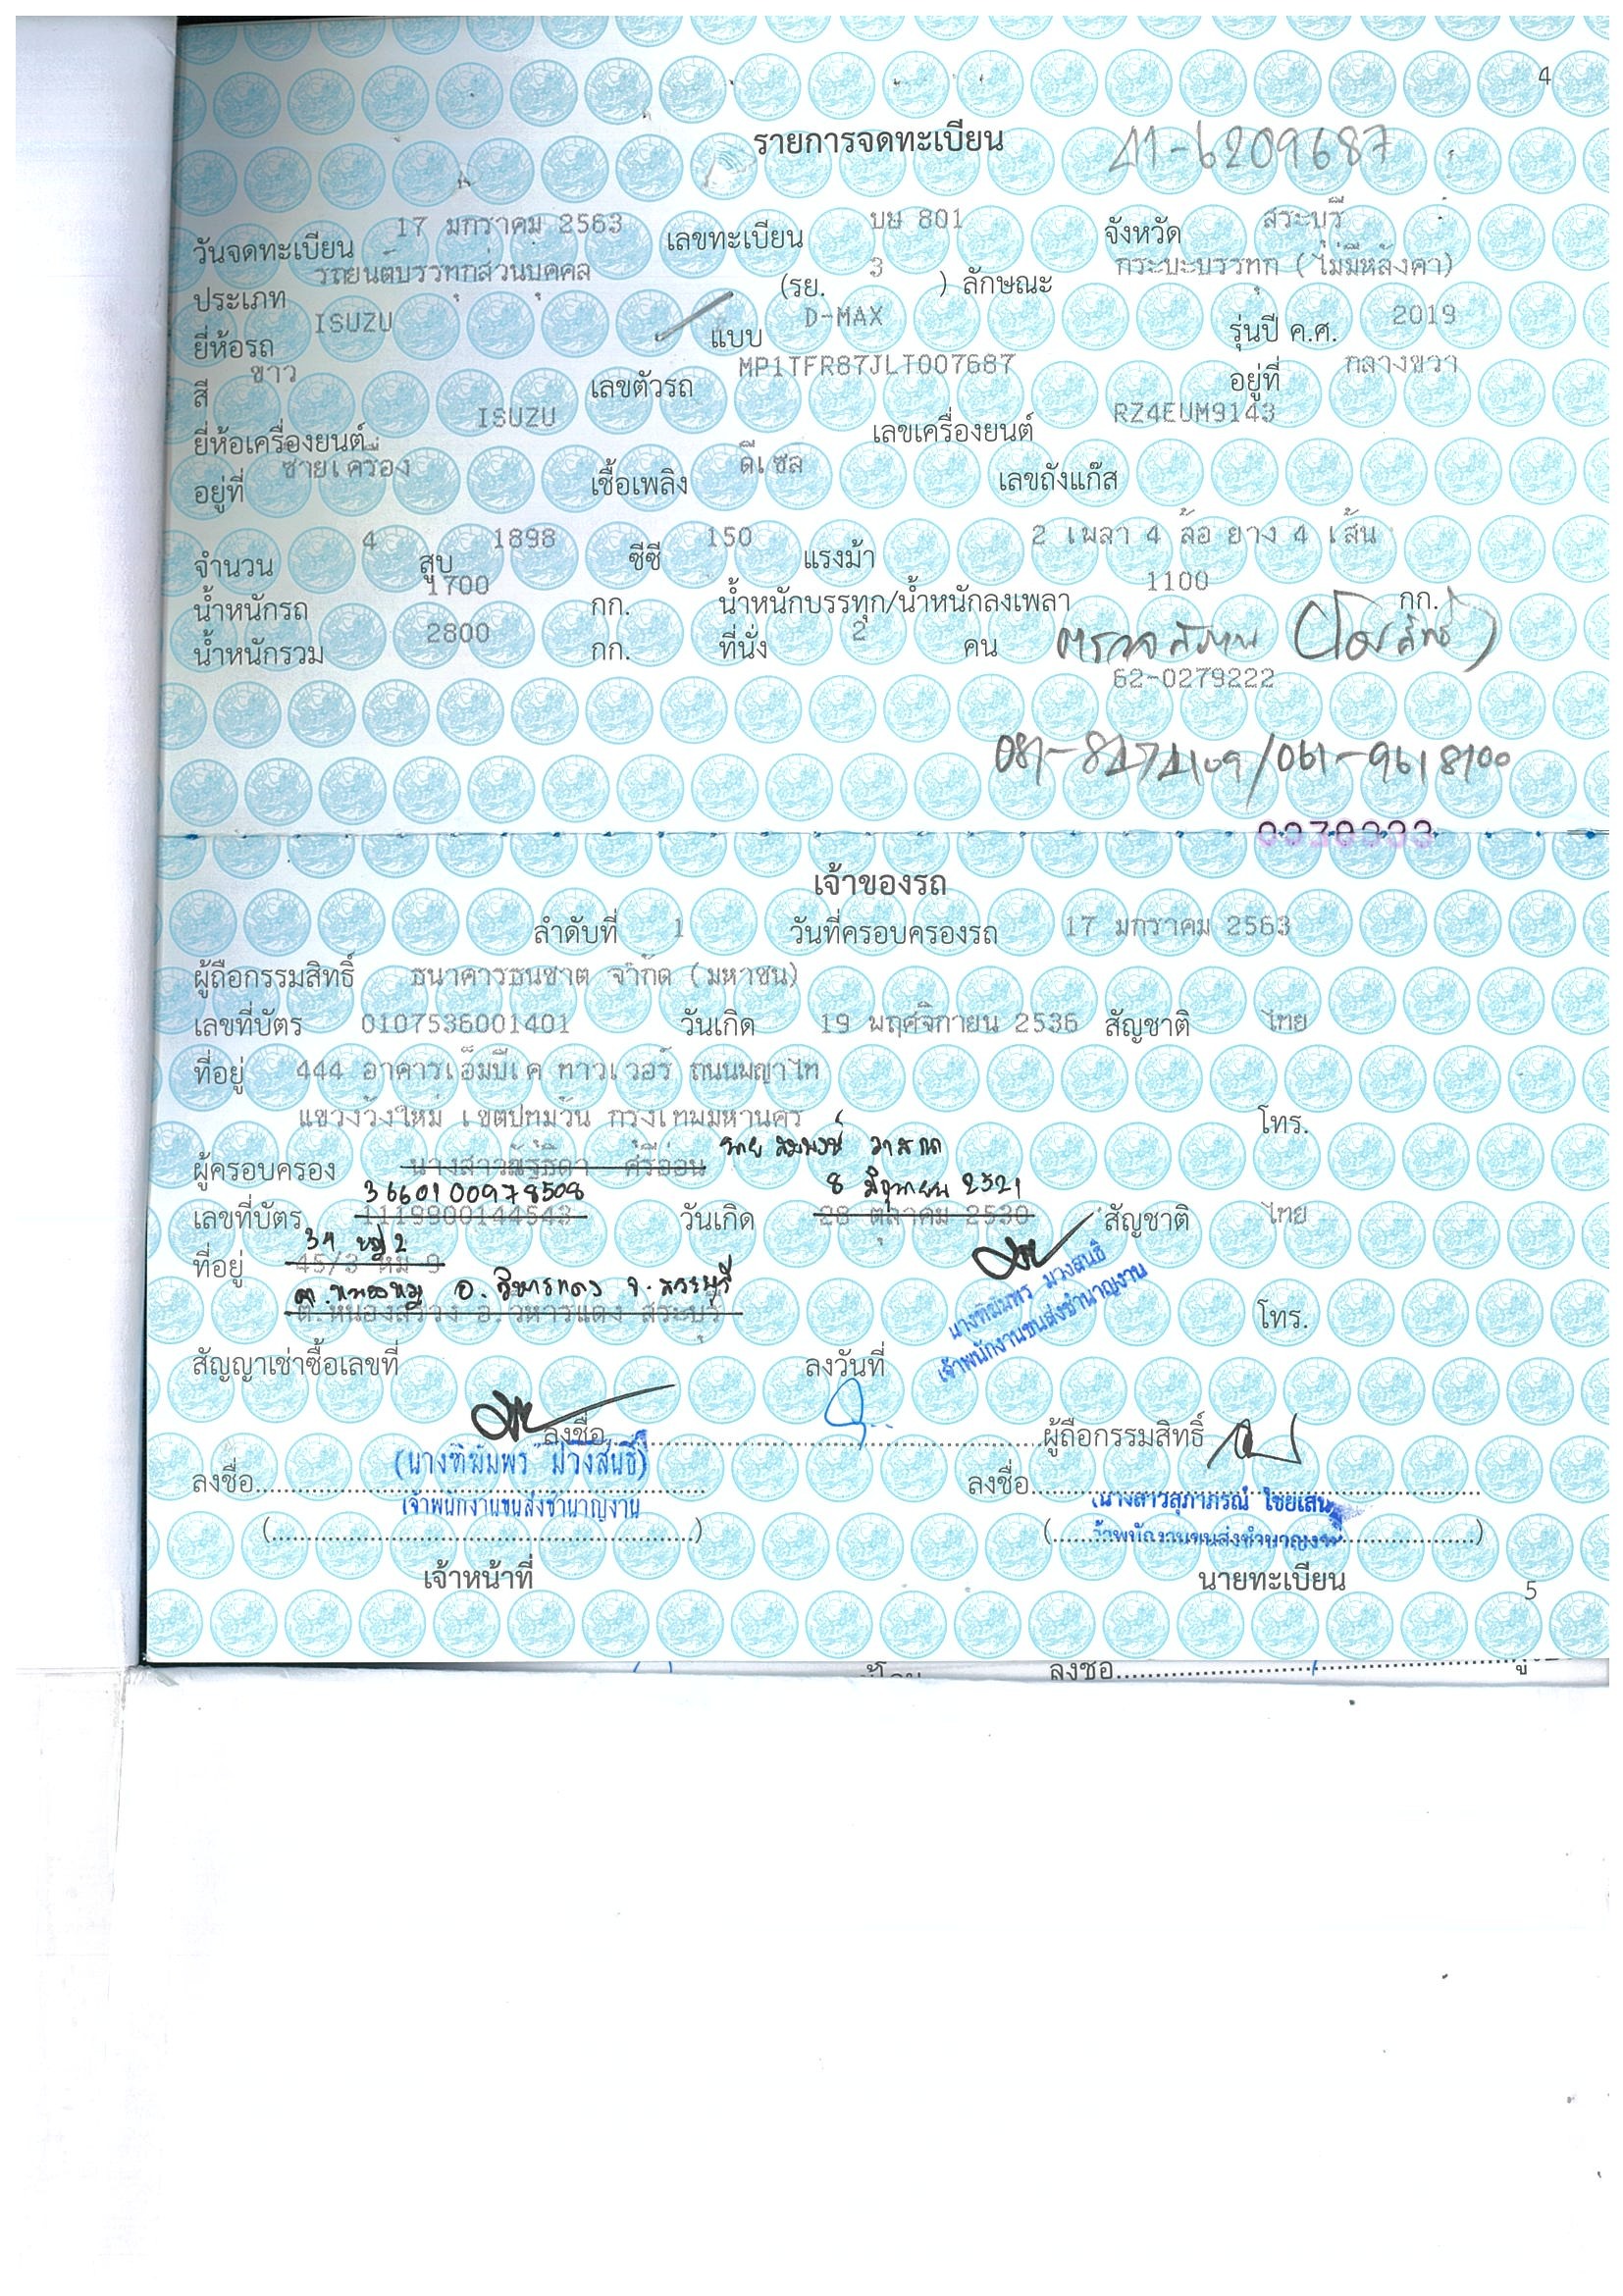 4
รายการจดทะเบียน 41-6209687
วันจดทะเบียน 17 มกราคม 2563 เลขทะเบียน บษ 801 จังหวัด สระบุรี
ประเภท รถยนต์บรรทุกส่วนบุคคล (รย. 3 ) ลักษณะ กระบะบรรทุก (ไม่มีหลังคา)
ยี่ห้อรถ ISUZU แบบ D-MAX รุ่นปี ค.ศ. 2019
สี ขาว เลขตัวรถ MP1TFR87JLT007687 อยู่ที่ กลางขวา
ยี่ห้อเครื่องยนต์ ISUZU เลขเครื่องยนต์ RZ4EUM9143
อยู่ที่ ซ้ายเครื่อง เชื้อเพลิง ดีเซล เลขถังแก๊ส
จำนวน 4 สูบ 1898 ซีซี 150 แรงม้า 2 เพลา 4 ล้อ ยาง 4 เส้น
น้ำหนักรถ 1700 กก. น้ำหนักบรรทุก/น้ำหนักลงเพลา 1100 กก.
น้ำหนักรวม 2800 กก. ที่นั่ง 2 คน
62-0279222
เจ้าของรถ
ลำดับที่ 1 วันที่ครอบครองรถ 17 มกราคม 2563
ผู้ถือกรรมสิทธิ์ ธนาคารธนชาต จำกัด (มหาชน)
เลขที่บัตร 0107536001401 วันเกิด 19 พฤศจิกายน 2536 สัญชาติ ไทย
ที่อยู่ 444 อาคารเอ็มบีเค ทาวเวอร์ ถนนพญาไท
แขวงวังใหม่ เขตปทุมวัน กรุงเทพมหานคร โทร.
นาย สมพงษ์
ผู้ครอบครอง นางสาวณัฐธิดา ศรีอ่อน
3660100978508 8 มิถุนายน 2521
เลขที่บัตร 1119900144543 วันเกิด 28 ตุลาคม 2530 สัญชาติ ไทย
34 หมู่ 2
ที่อยู่ 45/3 หมู่ 9
ต.หนองหมู อ.วิหารแดง จ.สระบุรี
ต.หนองสรวง อ.วิหารแดง สระบุรี โทร.
เจ้าพนักงานขนส่งชำนาญงาน
สัญญาเช่าซื้อเลขที่ ลงวันที่
ลงชื่อ ผู้ถือกรรมสิทธิ์
(นางทิฆัมพร ม่วงสนธิ์)
ลงชื่อ ลงชื่อ
เจ้าพนักงานขนส่งชำนาญงาน นางสาวสุภาภรณ์ ไชยเสน
เจ้าพนักงานขนส่งชำนาญงาน
เจ้าหน้าที่ นายทะเบียน
5
ลงชื่อ